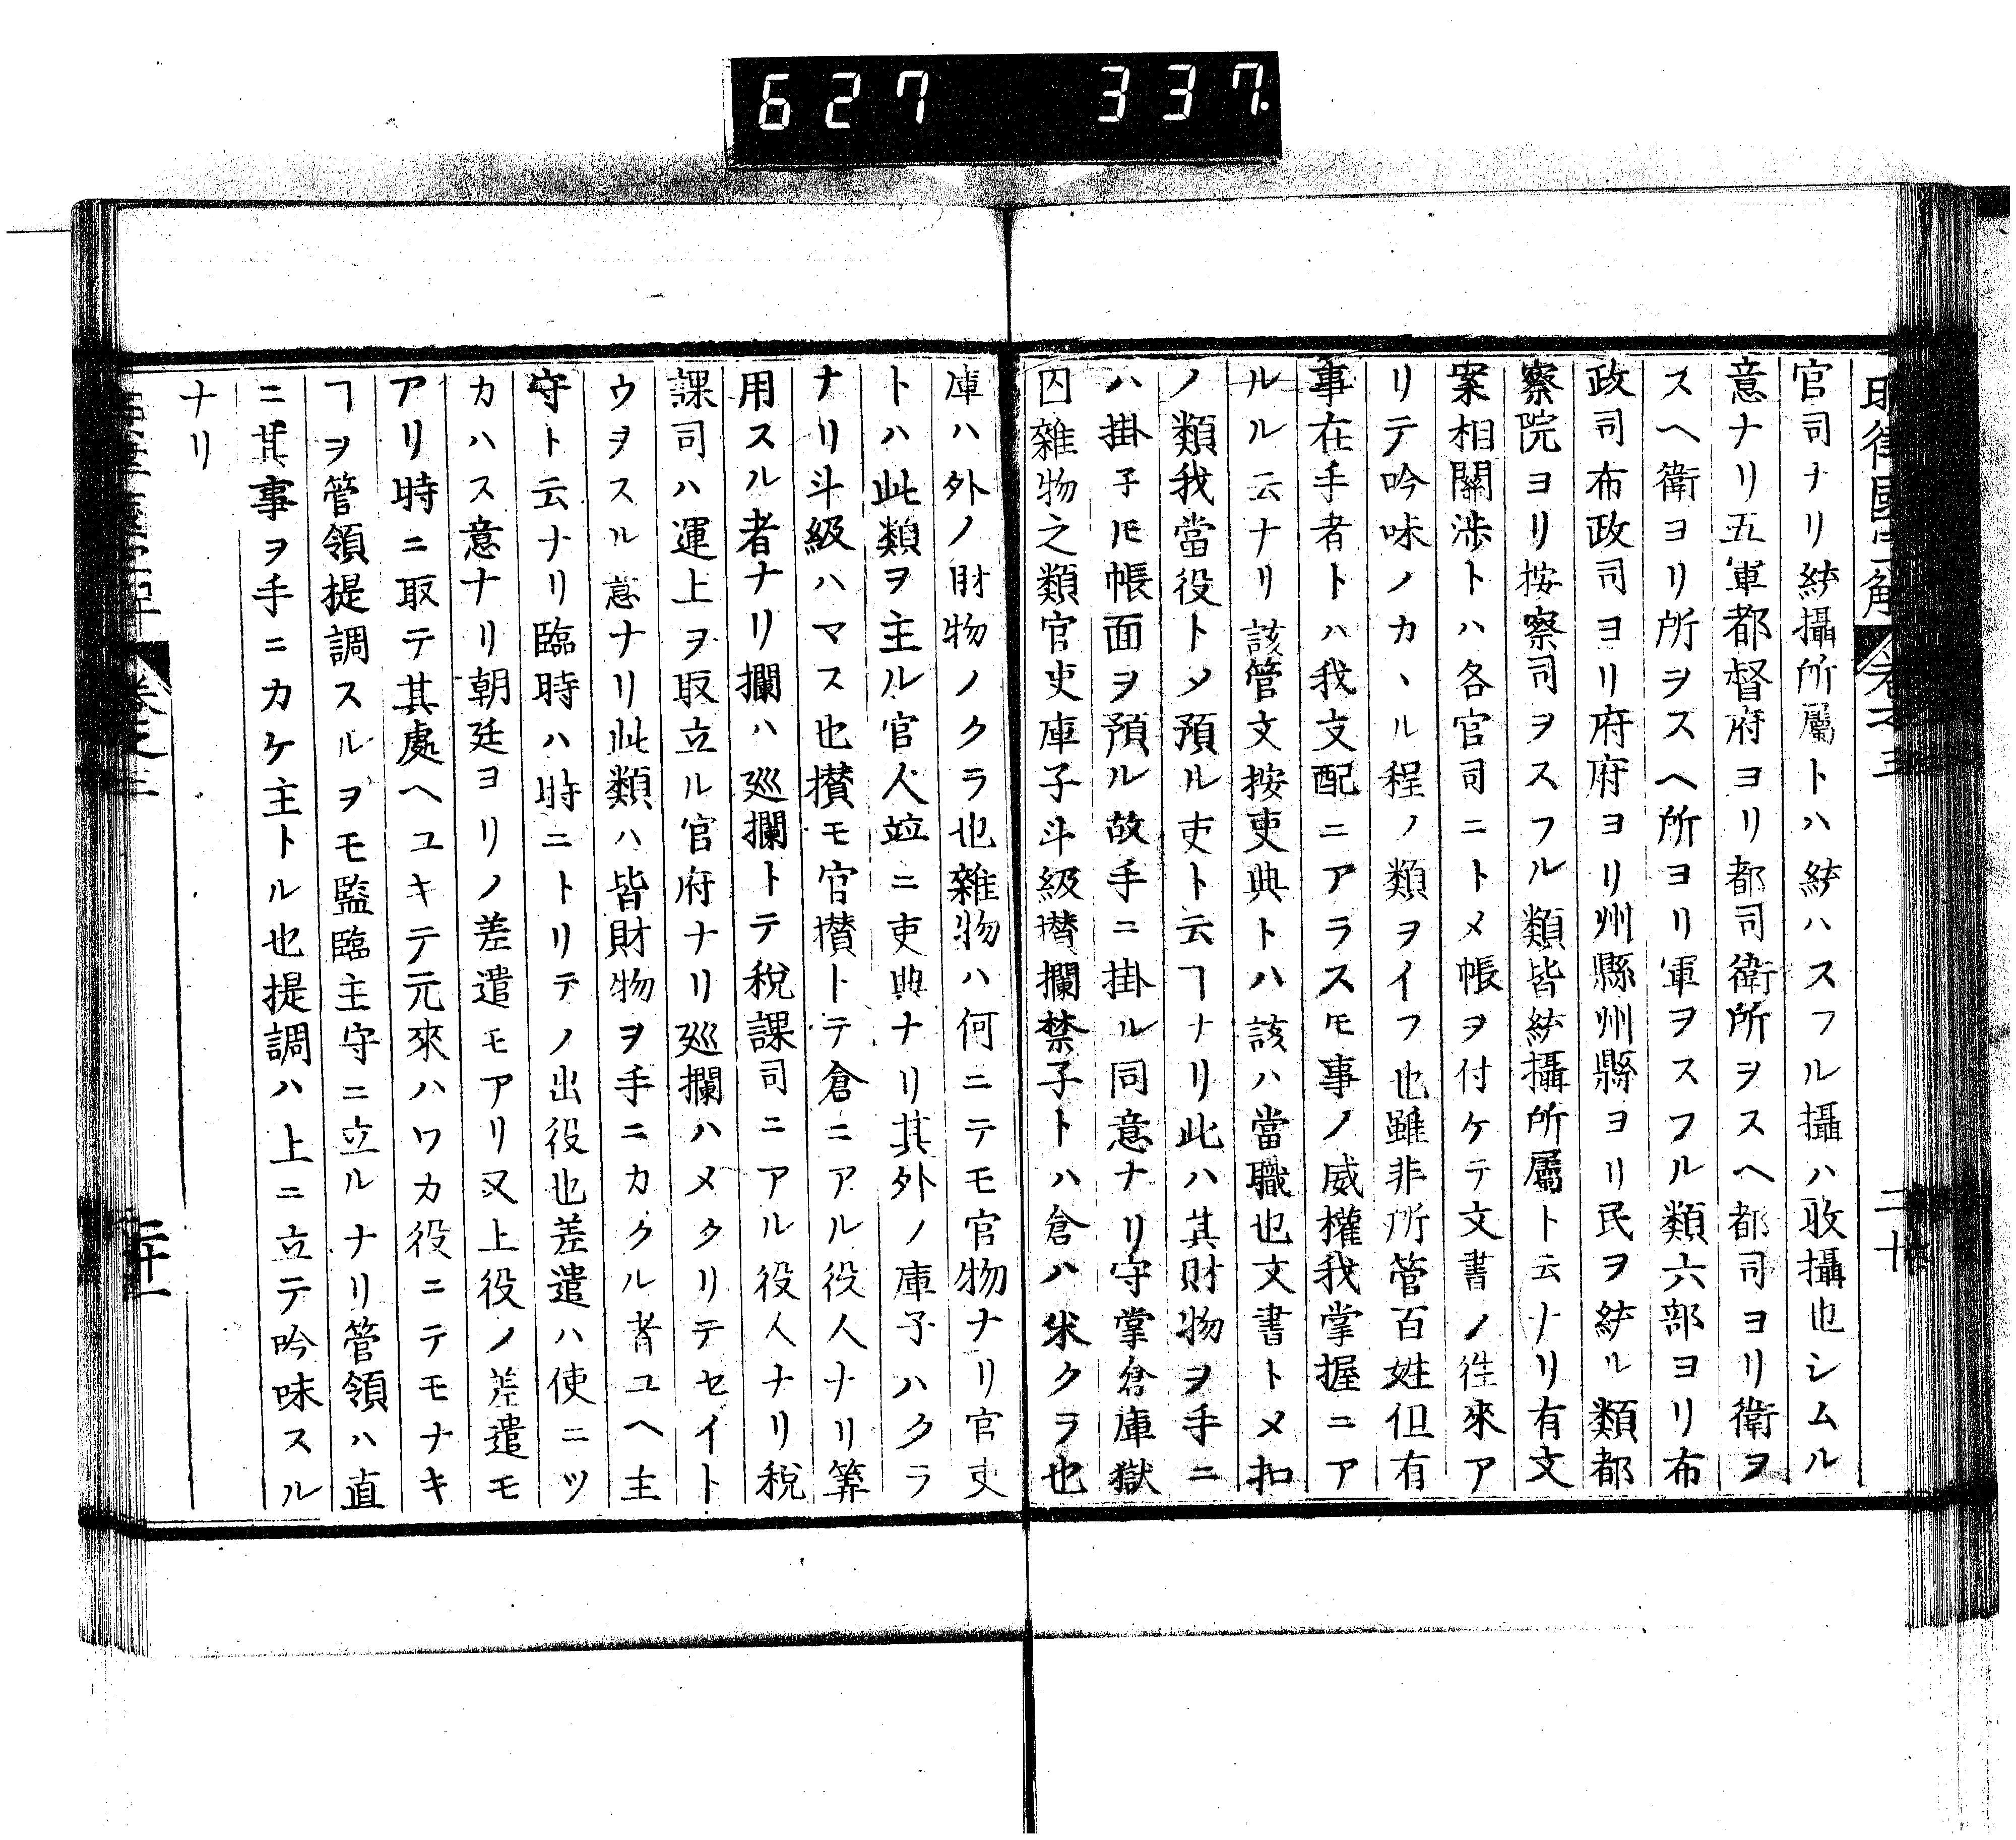 627 337.
官司ナリ統攝所屬トハ統ハスフル攝ハ收攝也シムル
意ナリ五軍都督府ヨリ都司衛所ヲスヘ都司ヨリ衛ヲ
スヘ衛ヨリ所ヲスヘ所ヨリ軍ヲスフル類六部ヨリ布
政司布政司ヨリ府府ヨリ州縣州縣ヨリ民ヲ統ル類都
察院ヨリ按察司ヲスフル類皆統攝所屬ト云ナリ有文
案相關渉トハ各官司ニトメ帳ヲ付ケテ文書ノ徃來ア
リテ吟味ノカヽル程ノ類ヲイフ也雖非所管百姓但有
事在手者トハ我支配ニアラスㇳモ事ノ威權我掌握ニア
ルル云ナリ該管文按吏典トハ該ハ當職也文書トメ扣
ノ類我當役トメ預ル吏ト云ヿナリ此ハ其財物ヲ手ニ
ハ掛子ㇳモ帳面ヲ預ル故手ニ掛ル同意ナリ守掌倉庫獄
囚雜物之類官吏庫子斗級攅攔禁子トハ倉ハ米クラ也
庫ハ外ノ財物ノクラ也雜物ハ何ニテモ官物ナリ官吏
トハ此類ヲ主ル官人竝ニ吏典ナリ其外ノ庫子ハクラ
ナリ斗級ハマス也攅モ官攅トテ倉ニアル役人ナリ筭
用スル者ナリ攔ハ廵攔トテ税課司ニアル役人ナリ税
課司ハ運上ヲ取立ル官府ナリ廵攔ハメクリテセイト
ウヲスル意ナリ此類ハ皆財物ヲ手ニカクル者ユヘ主
守ト云ナリ臨時ハ時ニトリテノ出役也差遣ハ使ニツ
カハス意ナリ朝廷ヨリノ差遣モアリ又上役ノ差遣モ
アリ時ニ取テ其處ヘユキテ元來ハワカ役ニテモナキ
ヿヲ管領提調スルヲモ監臨主守ニ立ルナリ管領ハ直
ニ其事ヲ手ニカケ主トル也提調ハ上ニ立テ吟味スル
ナリ